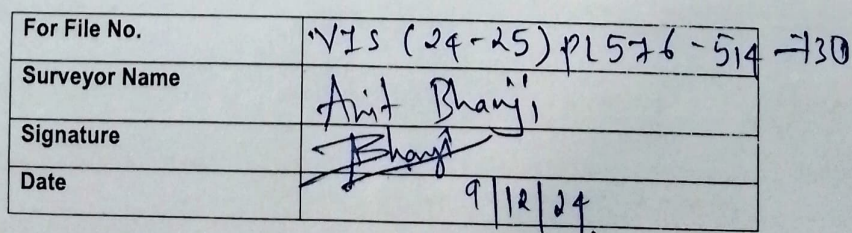 For File No. VIS (24-25) PL576-514-730
Surveyor Name Amit Bhanji
Signature Bhanji
Date 9/12/24